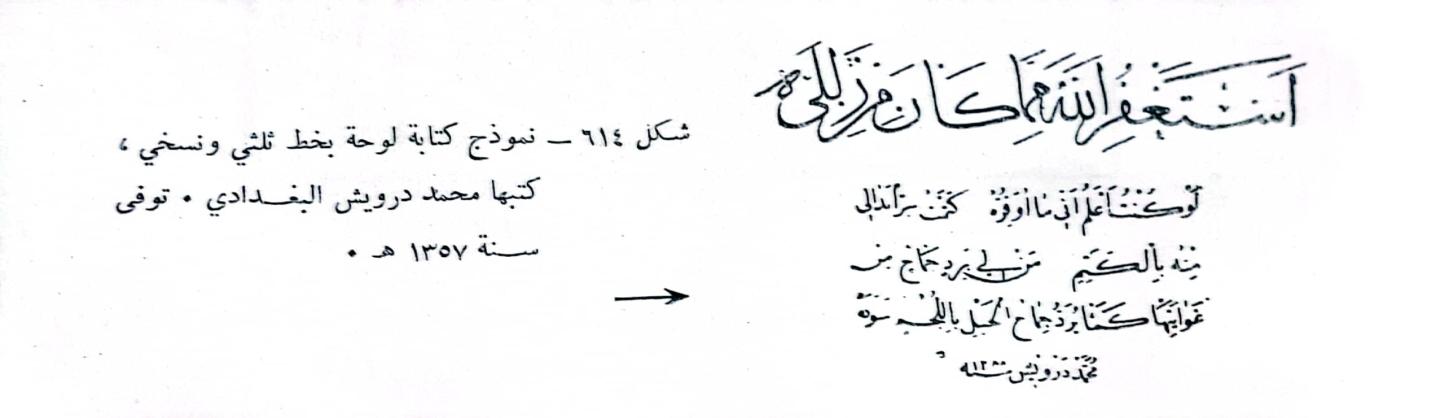 أستغفر الله مما كان من زللي
لَوْ كُنْتُ أَعْلَمُ أَنِّي مَا أُوَقِّرُهُ كَتَمْتُ سِرًّا بَدَا لِي
مِنْهُ بِالْكَتَمِ مَنْ لِي بِرَدِّ جِمَاحٍ مِنْ
غَوَايَتِهَا كَمَا يُرَدُّ جِمَاحُ الْخَيْلِ بِاللُّجُمِ
محمد درويش سنه ١٢٨٨
شكل ٦١٤ ـ نموذج كتابة لوحة بخط ثلثي ونسخي ،
كتبها محمد درويش البغدادي . توفى
سنة ١٣٥٧ هـ .